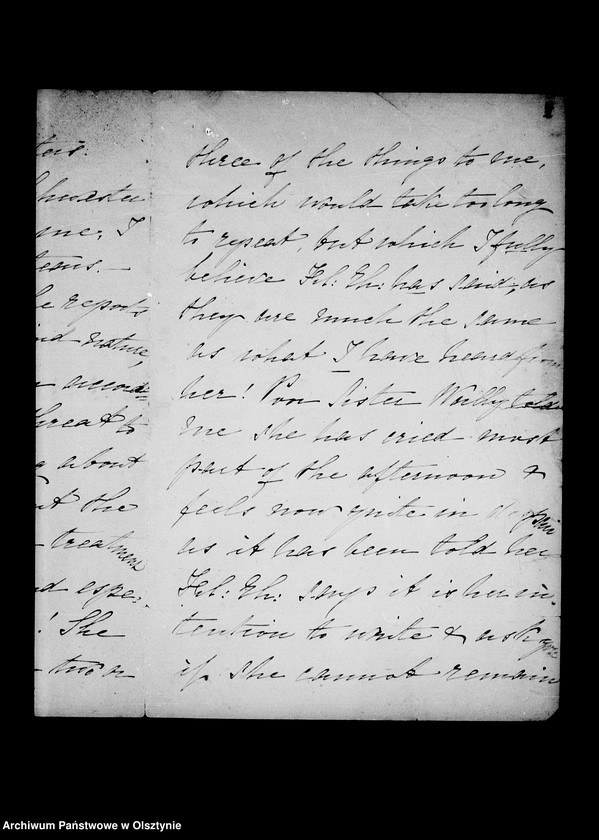 ters.
me; I
teans. —
he reports
nd nature,
accord=
threat to
about
ut the
- treatment
nd espe=
! She
- two or
three of the things to me,
which would take too long
to repeat, but which I fully
believe Fel: Eh: has said, as
they are much the same
as what I have heard from
her! Poor Sister Wally told
me she has cried most
part of the afternoon &
feels now quite in despair
as it has been told her
Fel: Eh: says it is her in-
tention to write & ask you
if she cannot remain
Archiwum Państwowe w Olsztynie